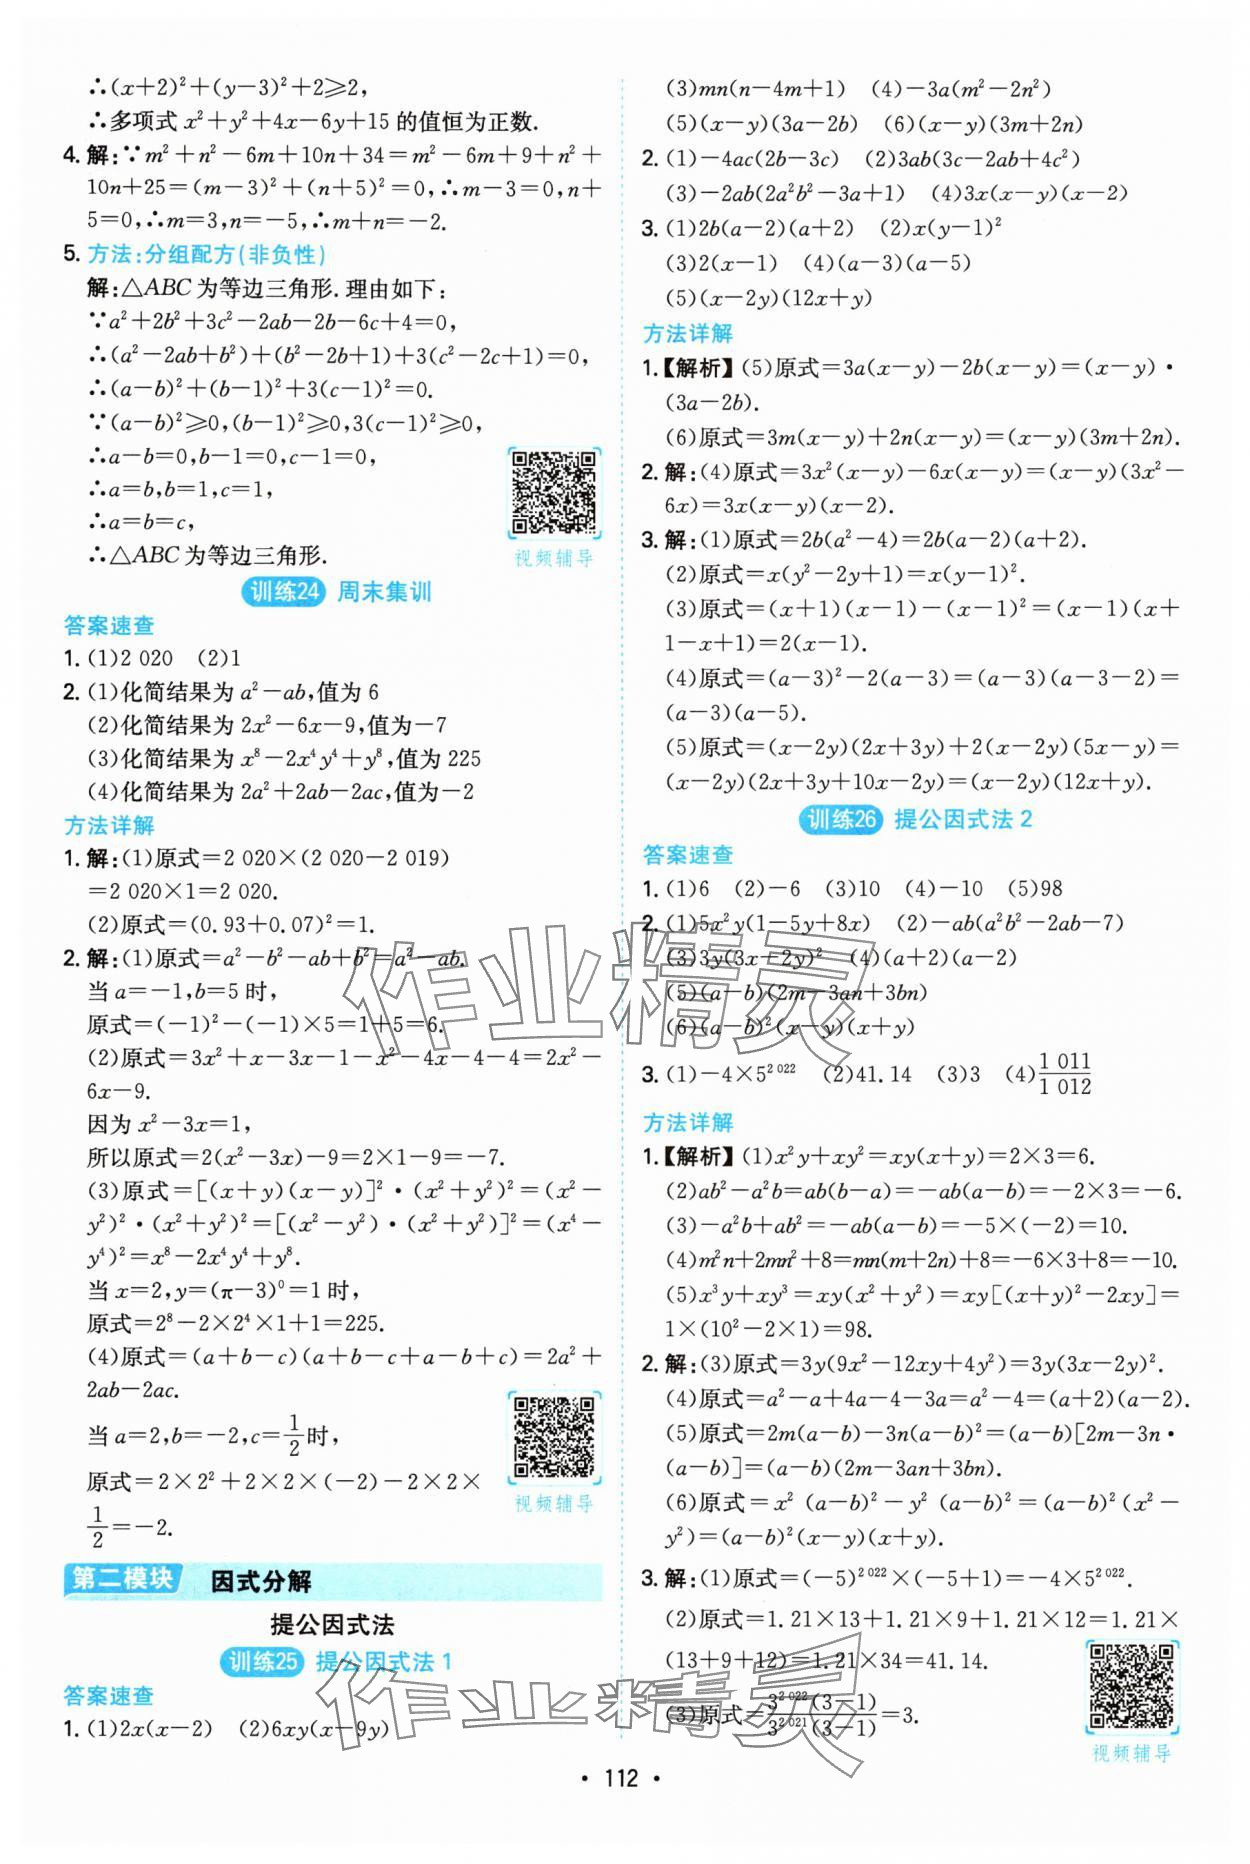 ∴(x+2)²+(y-3)²+2≥2,
∴多项式 x²+y²+4x-6y+15 的值恒为正数.
4. 解:∵m²+n²-6m+10n+34=m²-6m+9+n²+
10n+25=(m-3)²+(n+5)²=0,∴m-3=0,n+
5=0,∴m=3,n=-5,∴m+n=-2.
5. 方法:分组配方(非负性)
解:△ABC 为等边三角形.理由如下:
∵a²+2b²+3c²-2ab-2b-6c+4=0,
∴(a²-2ab+b²)+(b²-2b+1)+3(c²-2c+1)=0,
∴(a-b)²+(b-1)²+3(c-1)²=0.
∵(a-b)²≥0,(b-1)²≥0,3(c-1)²≥0,
∴a-b=0,b-1=0,c-1=0,
∴a=b,b=1,c=1,
∴a=b=c,
∴△ABC 为等边三角形.
视频辅导
训练24 周末集训
答案速查
1. (1)2 020 (2)1
2. (1)化简结果为 a²-ab,值为 6
(2)化简结果为 2x²-6x-9,值为-7
(3)化简结果为 x⁸-2x⁴y⁴+y⁸,值为 225
(4)化简结果为 2a²+2ab-2ac,值为-2
方法详解
1. 解:(1)原式=2 020×(2 020-2 019)
=2 020×1=2 020.
(2)原式=(0.93+0.07)²=1.
2. 解:(1)原式=a²-b²-ab+b²=a²-ab.
当 a=-1,b=5 时,
原式=(-1)²-(-1)×5=1+5=6.
(2)原式=3x²+x-3x-1-x²-4x-4-4=2x²-
6x-9.
因为 x²-3x=1,
所以原式=2(x²-3x)-9=2×1-9=-7.
(3)原式=[(x+y)(x-y)]²·(x²+y²)²=(x²-
y²)²·(x²+y²)²=[(x²-y²)·(x²+y²)]²=(x⁴-
y⁴)²=x⁸-2x⁴y⁴+y⁸.
当 x=2,y=(π-3)⁰=1 时,
原式=2⁸-2×2⁴×1+1=225.
(4)原式=(a+b-c)(a+b-c+a-b+c)=2a²+
2ab-2ac.
当 a=2,b=-2,c=1/2时,
原式=2×2²+2×2×(-2)-2×2×
1/2=-2.
视频辅导
第二模块 因式分解
提公因式法
训练25 提公因式法 1
答案速查
1. (1)2x(x-2) (2)6xy(x-9y)
(3)mn(n-4m+1) (4)-3a(m²-2n²)
(5)(x-y)(3a-2b) (6)(x-y)(3m+2n)
2. (1)-4ac(2b-3c) (2)3ab(3c-2ab+4c²)
(3)-2ab(2a²b²-3a+1) (4)3x(x-y)(x-2)
3. (1)2b(a-2)(a+2) (2)x(y-1)²
(3)2(x-1) (4)(a-3)(a-5)
(5)(x-2y)(12x+y)
方法详解
1.【解析】(5)原式=3a(x-y)-2b(x-y)=(x-y)·
(3a-2b).
(6)原式=3m(x-y)+2n(x-y)=(x-y)(3m+2n).
2. 解:(4)原式=3x²(x-y)-6x(x-y)=(x-y)(3x²-
6x)=3x(x-y)(x-2).
3. 解:(1)原式=2b(a²-4)=2b(a-2)(a+2).
(2)原式=x(y²-2y+1)=x(y-1)².
(3)原式=(x+1)(x-1)-(x-1)²=(x-1)(x+
1-x+1)=2(x-1).
(4)原式=(a-3)²-2(a-3)=(a-3)(a-3-2)=
(a-3)(a-5).
(5)原式=(x-2y)(2x+3y)+2(x-2y)(5x-y)=
(x-2y)(2x+3y+10x-2y)=(x-2y)(12x+y).
训练26 提公因式法 2
答案速查
1. (1)6 (2)-6 (3)10 (4)-10 (5)98
2. (1)5x²y(1-5y+8x) (2)-ab(a²b²-2ab-7)
(3)3y(3x-2y)² (4)(a+2)(a-2)
(5)(a-b)(2m-3an+3bn)
(6)(a-b)²(x-y)(x+y)
3. (1)-4×5²⁰²² (2)41.14 (3)3 (4)1 011/1 012
方法详解
1.【解析】(1)x²y+xy²=xy(x+y)=2×3=6.
(2)ab²-a²b=ab(b-a)=-ab(a-b)=-2×3=-6.
(3)-a²b+ab²=-ab(a-b)=-5×(-2)=10.
(4)m²n+2mn²+8=mn(m+2n)+8=-6×3+8=-10.
(5)x³y+xy³=xy(x²+y²)=xy[(x+y)²-2xy]=
1×(10²-2×1)=98.
2. 解:(3)原式=3y(9x²-12xy+4y²)=3y(3x-2y)².
(4)原式=a²-a+4a-4-3a=a²-4=(a+2)(a-2).
(5)原式=2m(a-b)-3n(a-b)²=(a-b)[2m-3n·
(a-b)]=(a-b)(2m-3an+3bn).
(6)原式=x²(a-b)²-y²(a-b)²=(a-b)²(x²-
y²)=(a-b)²(x-y)(x+y).
3. 解:(1)原式=(-5)²⁰²²×(-5+1)=-4×5²⁰²².
(2)原式=1.21×13+1.21×9+1.21×12=1.21×
(13+9+12)=1.21×34=41.14.
(3)原式=3²⁰²²(3-1)/3²⁰²¹(3-1)=3.
视频辅导
作业精灵
作业精灵
· 112 ·